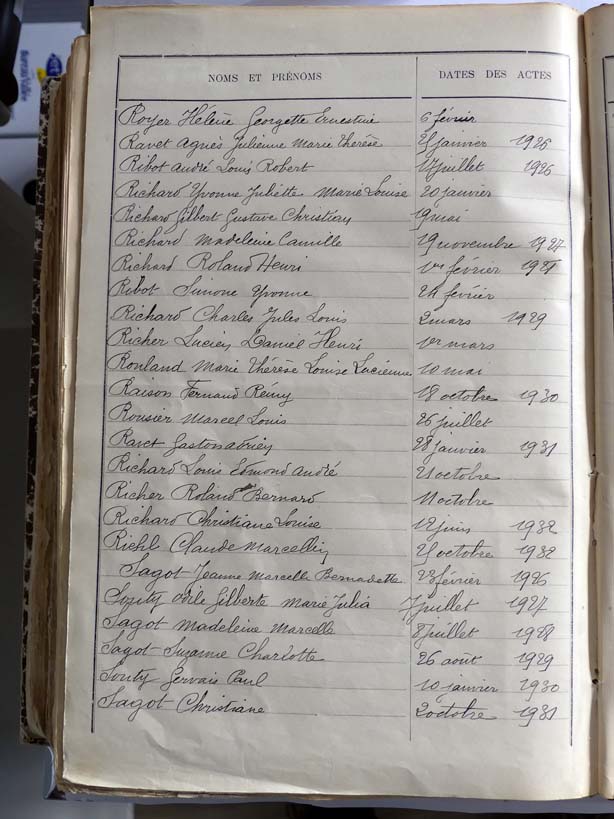 NOMS ET PRÉNOMS DATES DES ACTES
Royer Hélène Georgette Ernestine 6 février
Ravet Agnès Julienne Marie Thérèse 21 janvier 1926
Ribot André Louis Robert 17 juillet 1926
Richard Yvonne Juliette Marie Louise 20 janvier
Richard Gilbert Gustave Christian 19 mai
Richard Madeleine Camille 19 novembre 1927
Richard Roland Henri 1er février
Ribot Simone Yvonne 24 février
Richard Charles Jules Louis 2 mars 1929
Richer Lucien Daniel Henri 1er mars
Rouland Marie Thérèse Louise Lucienne 10 mai
Raison Fernand Rémy 18 octobre 1930
Rousier Marcel Louis 26 juillet
Ravet Gaston Adrien 28 janvier 1931
Richard Louis Edmond André 21 octobre
Richer Roland Bernard 11 octobre
Richard Christiane Louise 12 juin 1932
Richl Claude Marcellin 21 octobre 1932
Sagot Jeanne Marcelle Bernadette 22 février 1926
Souty Odile Gilberte Marie Julia 7 juillet 1927
Sagot Madeleine Marcelle 8 juillet 1928
Sagot Suzanne Charlotte 26 août 1929
Souty Gervais Paul 10 janvier 1930
Sagot Christiane 2 octobre 1931